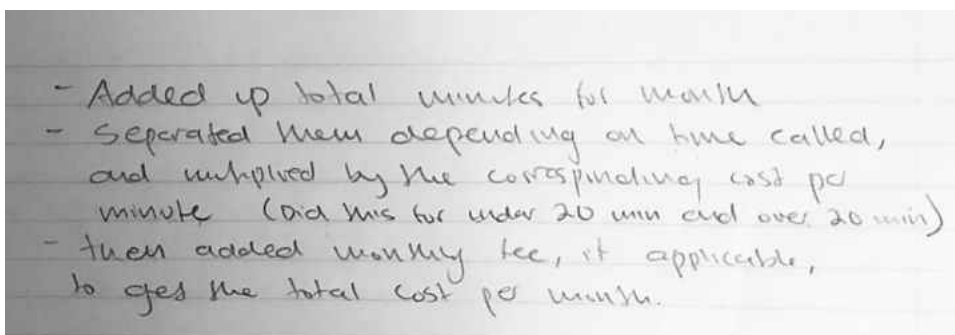 - Added up total minutes for month
- Separated them depending on time called,
and multiplied by the correspinding cost per
minute (Did this for under 20 min and over 20 min)
- then added monthly fee, if applicable,
to get the total cost per month.